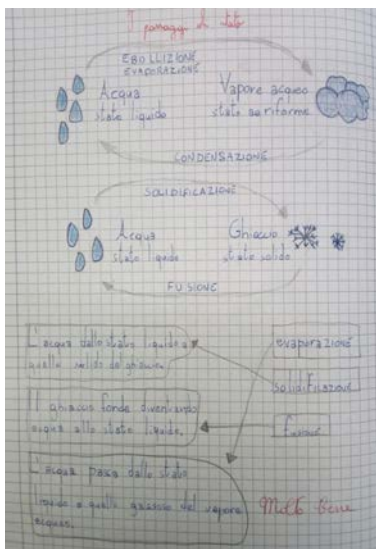 I passaggi di stato
EBOLLIZIONE
EVAPORAZIONE
Acqua
stato liquido
Vapore acqueo
stato aeriforme
CONDENSAZIONE
SOLIDIFICAZIONE
Acqua
stato liquido
Ghiaccio
stato solido
FUSIONE
L'acqua dallo stato liquido a
quello solido del ghiaccio.
Il ghiaccio fonde diventando
acqua allo stato liquido.
L'acqua passa dallo stato
liquido a quello gassoso del vapore
acqueo.
evaporazione
solidificazione
fusione
Molto bene